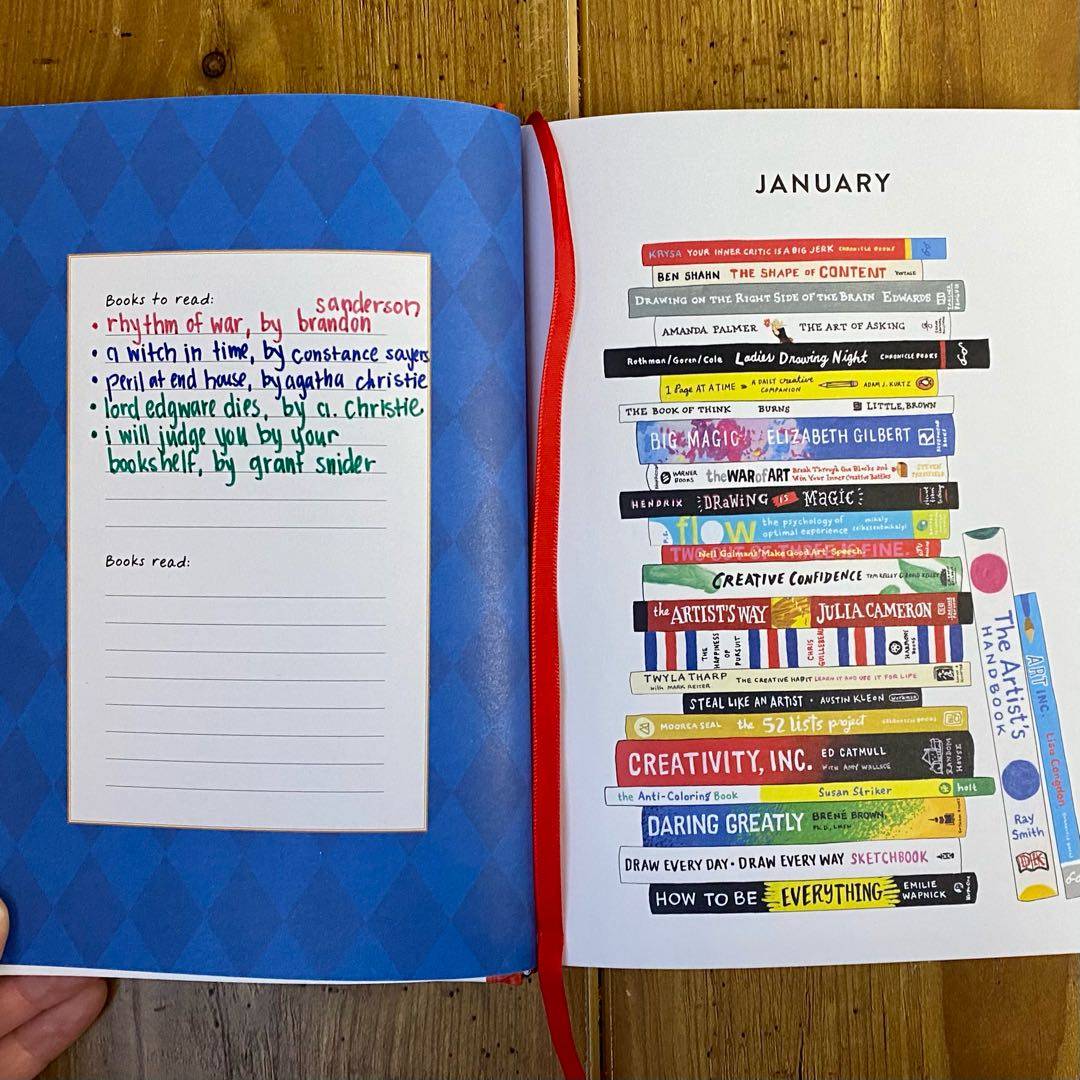 Books to read:
sanderson
• rhythm of war, by brandon
• a witch in time, by constance sayers
• peril at end house, by agatha christie
• lord edgware dies, by a. christie
• i will judge you by your
bookshelf, by grant snider
Books read:
JANUARY
KRYSA YOUR INNER CRITIC IS A BIG JERK CHRONICLE BOOKS
BEN SHAHN THE SHAPE OF CONTENT VINTAGE
DRAWING ON THE RIGHT SIDE OF THE BRAIN EDWARDS
AMANDA PALMER THE ART OF ASKING
Rothman/Goren/Cole Ladies Drawing Night CHRONICLE BOOKS
1 PAGE AT A TIME A DAILY creative COMPANION ADAM J. KURTZ
THE BOOK OF THINK BURNS LITTLE, BROWN
BIG MAGIC ELIZABETH GILBERT
WARNER BOOKS the WAR of ART Break Through the Blocks and Win Your Inner Creative Battles STEVEN
HENDRIX DRAWING IS MAGIC
flow the psychology of optimal experience mihaly csikszentmihalyi
Neil Gaiman's 'Make Good Art' Speech.
CREATIVE CONFIDENCE TOM KELLEY & DAVID KELLEY
the ARTIST'S WAY JULIA CAMERON
THE HAPPINESS OF PURSUIT CHRIS GUILLEBEAU HARMONY BOOKS
TWYLA THARP with MARK REITER THE CREATIVE HABIT LEARN IT AND USE IT FOR LIFE
STEAL LIKE AN ARTIST • AUSTIN KLEON workman
MOOREA SEAL the 52 lists project SASQUATCH BOOKS
CREATIVITY, INC. ED CATMULL WITH AMY WALLACE RANDOM HOUSE
the Anti-Coloring Book Susan Striker holt
DARING GREATLY BRENÉ BROWN, Ph.D., LMSW
DRAW EVERY DAY • DRAW EVERY WAY SKETCHBOOK
HOW TO BE EVERYTHING EMILIE WAPNICK
The Artist's HANDBOOK Ray Smith DK
ART INC. Lisa Congdon